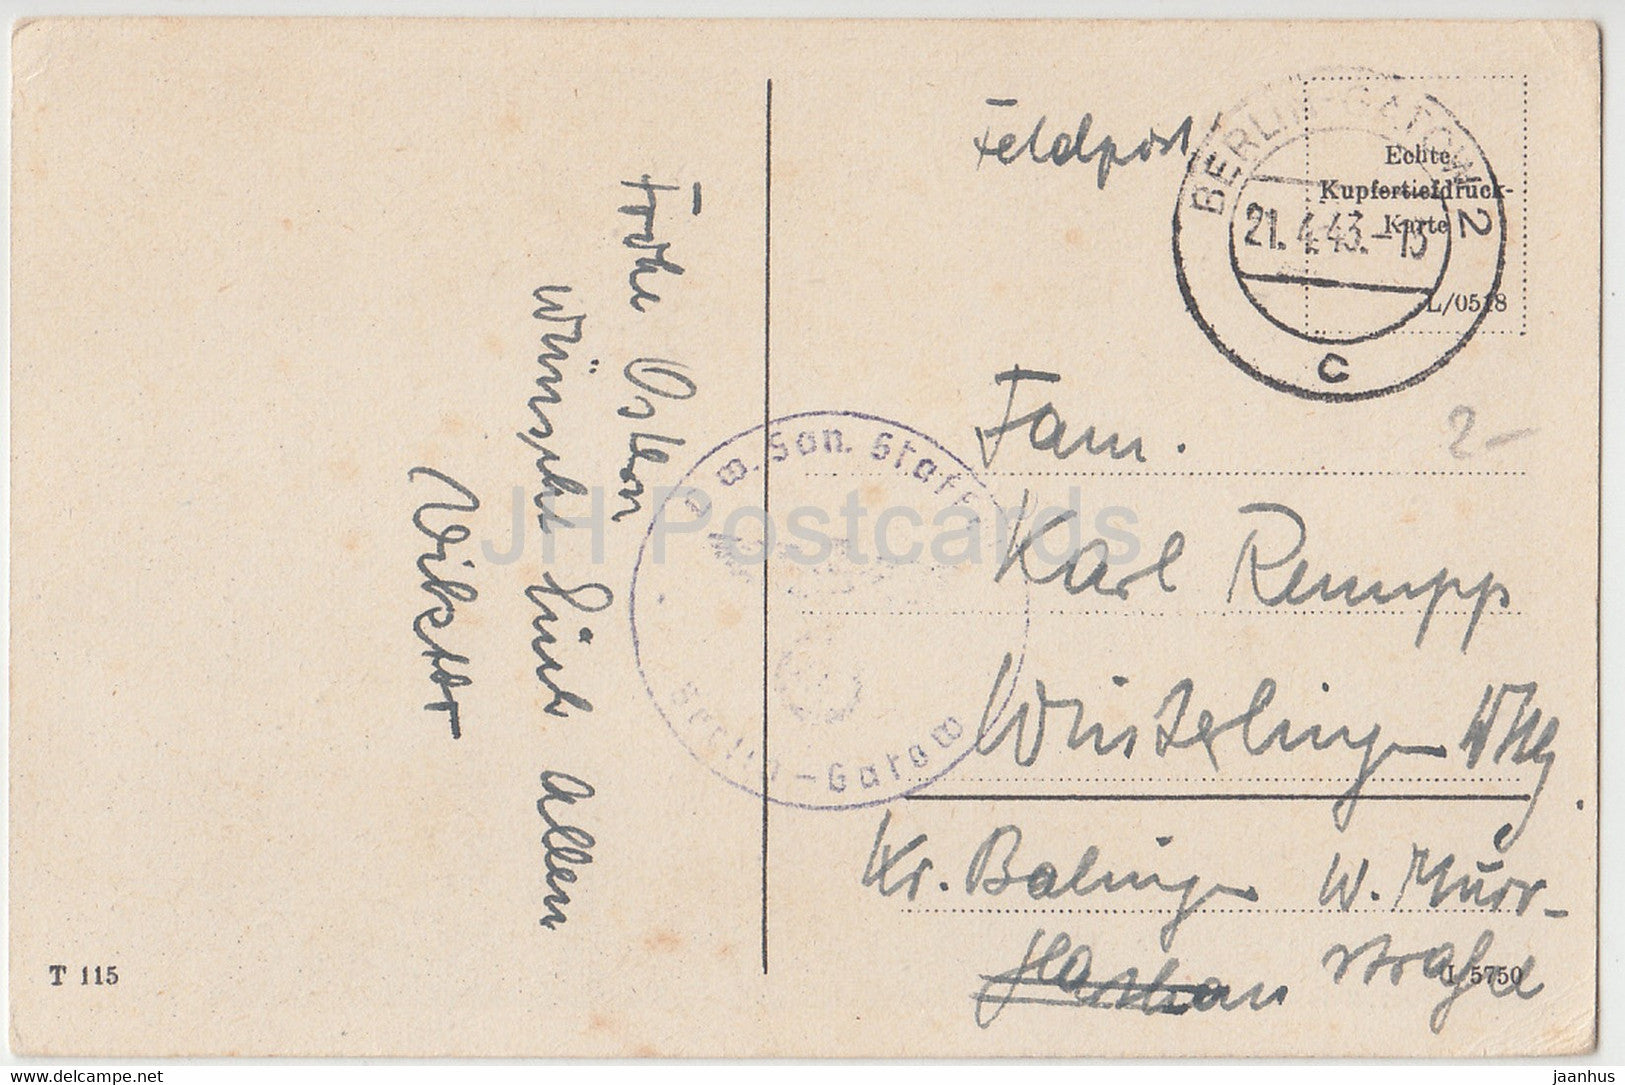 Feldpost
BERLIN-GATOW 2
21.4.43.-13
c
Echte
Kupfertiefdruck-
Karte
L/0518
Frohe Ostern
wünscht Euch allen
Viktor
w. San. Staff
Berlin-Gatow
Fam.
2-
Karl Rempp
Winterlingen Wttg.
Kr. Balingen W. Murr-
strasse
T 115
L 5750
JH Postcards
www.delcampe.net
jaanhus